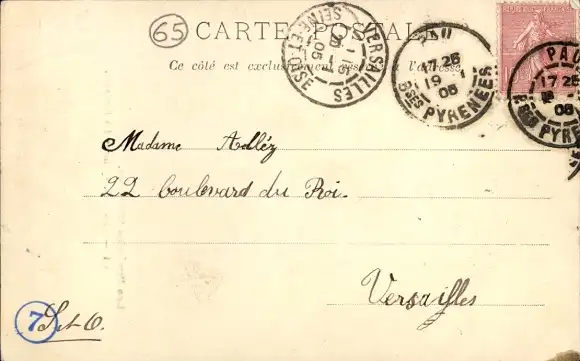 65 CARTE POSTALE
Ce côté est exclusivement réservé à l'adresse
VERSAILLES
SEINE-ET-OISE
05
PAU
17 25
19 1
05
BSES PYRENEES
PAU
17 25
05
BSES PYRE
Madame
22 boulevard du Roi.
Versailles
7 S. et O.